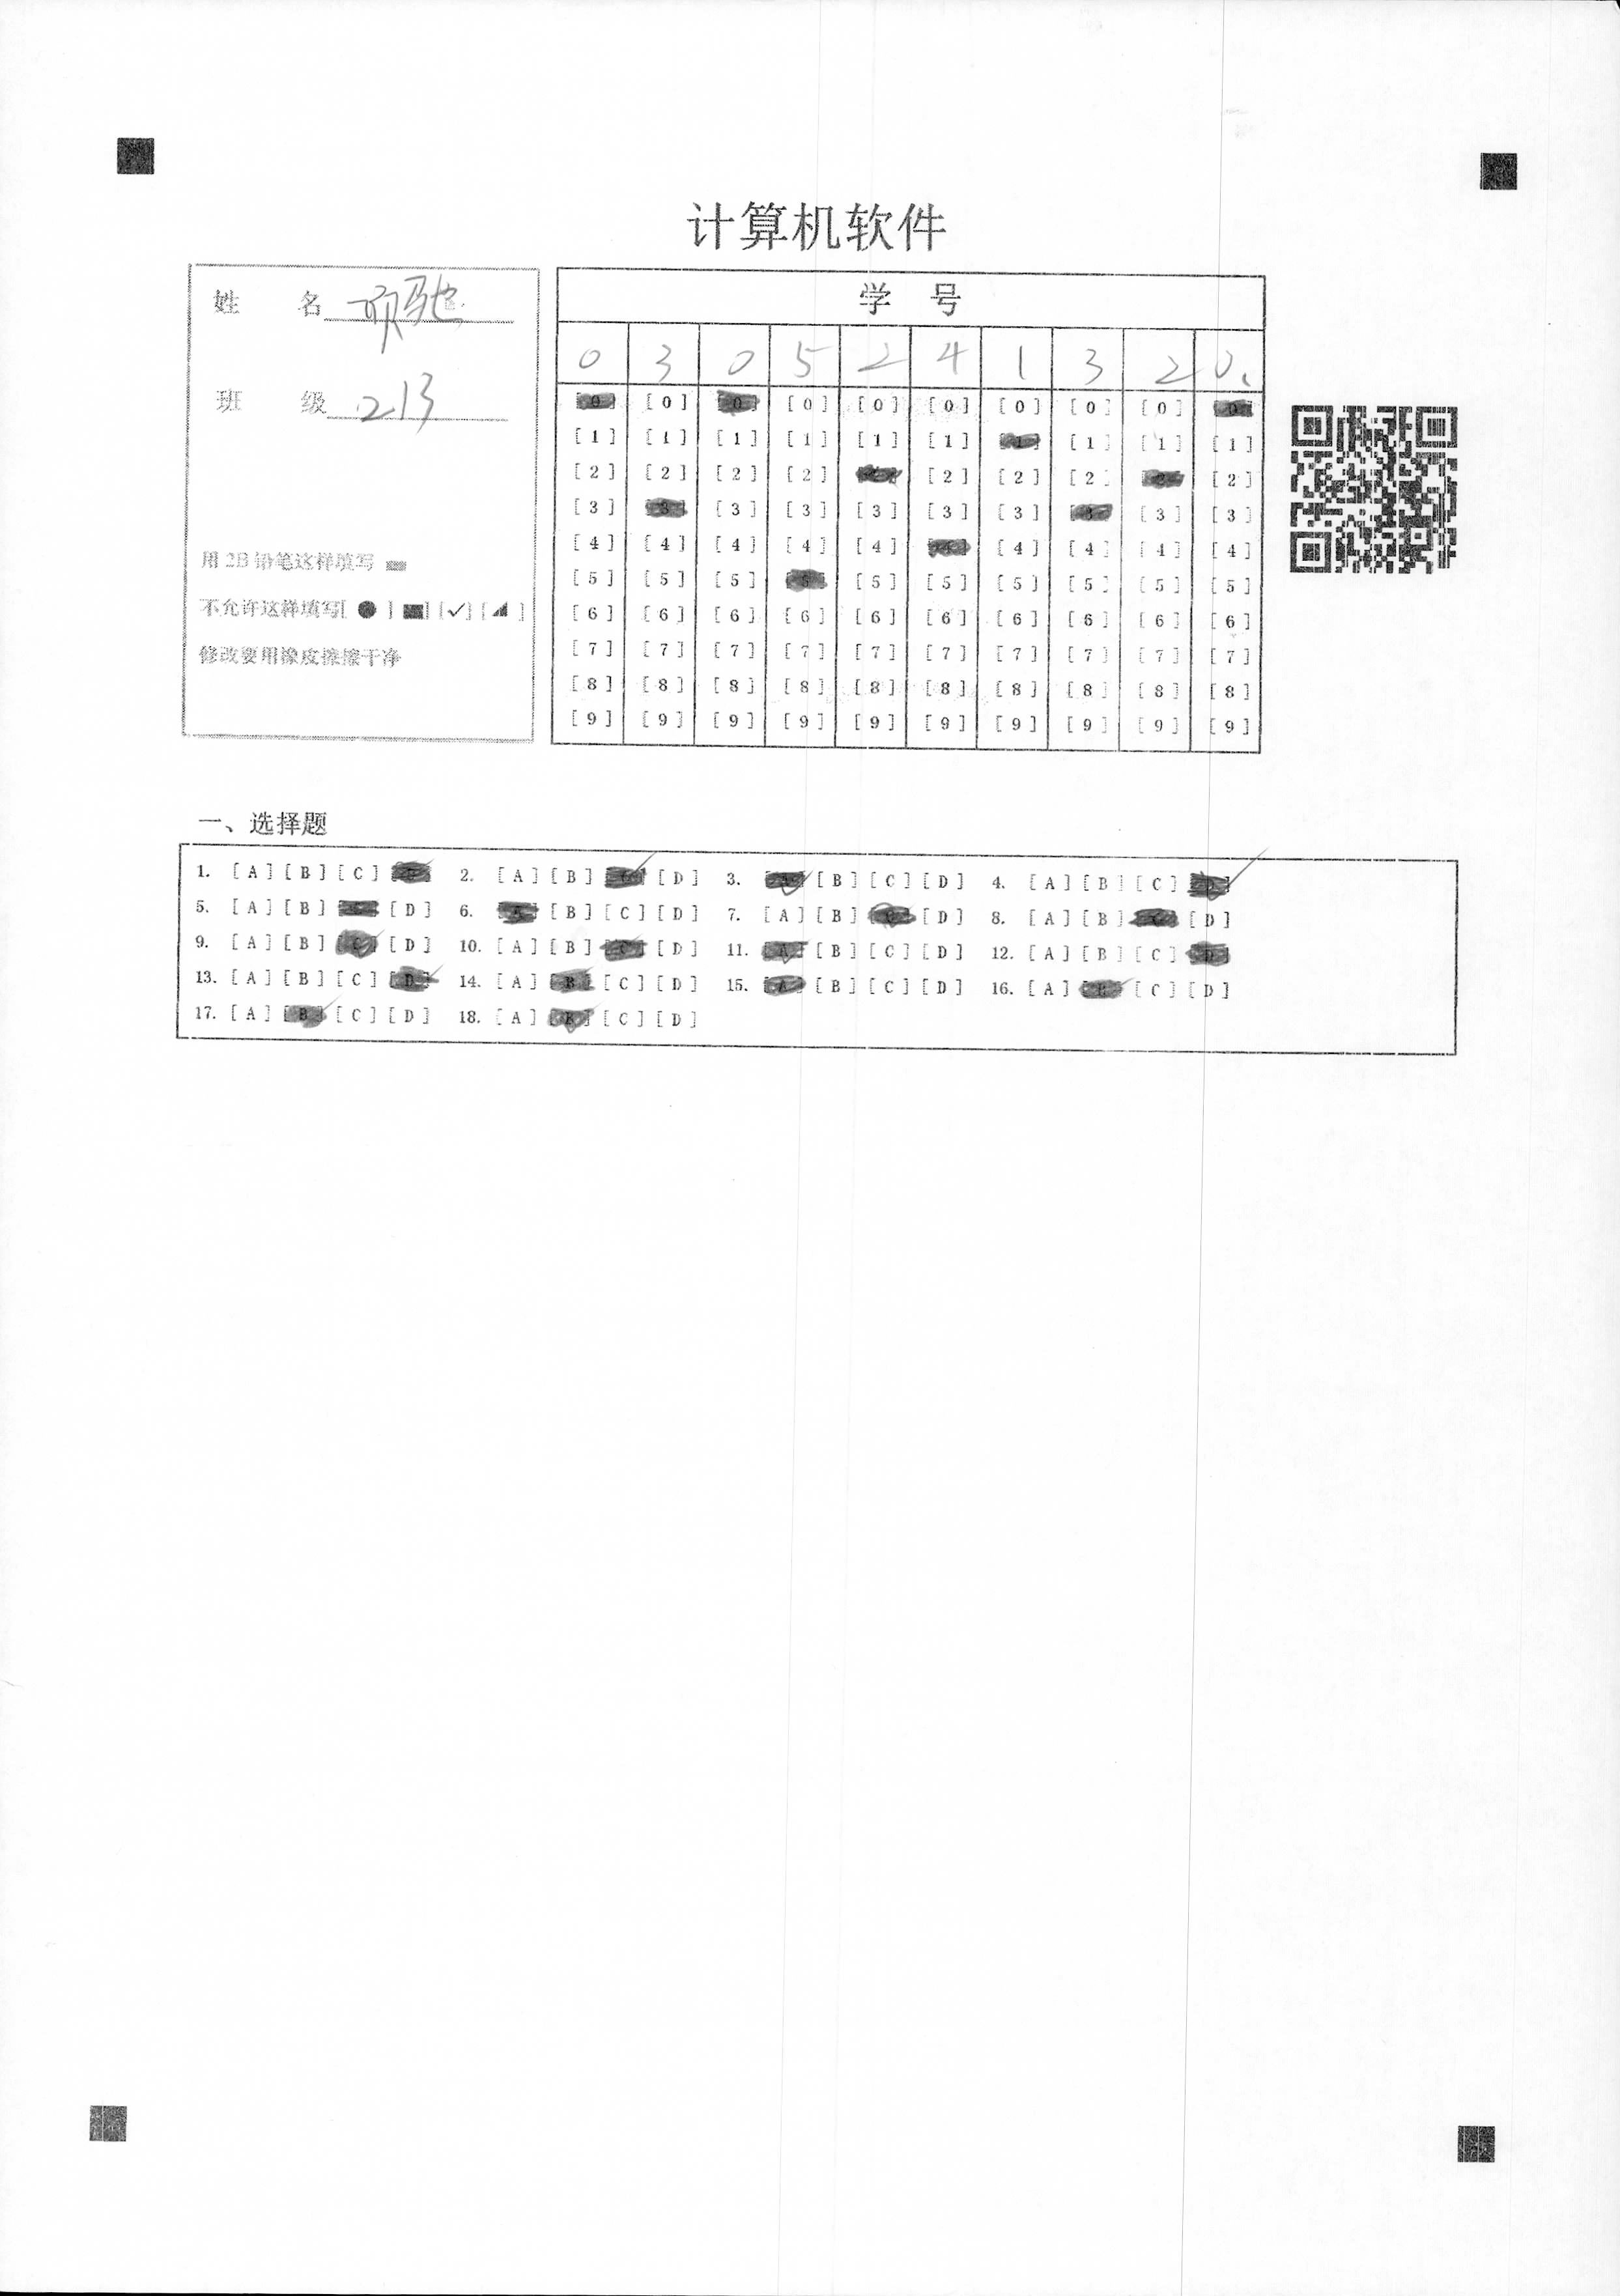 计算机软件
姓 名 驰
班 级 213
用 2B 铅笔这样填写
不允许这样填写[ ● ] [■] [✓] [◢ ]
修改要用橡皮擦擦干净
学 号
0 3 0 5 2 4 1 3 2 0
[0] [0] [0] [0] [0] [0] [0] [0] [0] [0]
[1] [1] [1] [1] [1] [1] [1] [1] [1] [1]
[2] [2] [2] [2] [2] [2] [2] [2] [2] [2]
[3] [3] [3] [3] [3] [3] [3] [3] [3] [3]
[4] [4] [4] [4] [4] [4] [4] [4] [4] [4]
[5] [5] [5] [5] [5] [5] [5] [5] [5] [5]
[6] [6] [6] [6] [6] [6] [6] [6] [6] [6]
[7] [7] [7] [7] [7] [7] [7] [7] [7] [7]
[8] [8] [8] [8] [8] [8] [8] [8] [8] [8]
[9] [9] [9] [9] [9] [9] [9] [9] [9] [9]
一、选择题
1. [A] [B] [C] [D] 2. [A] [B] [C] [D] 3. [A] [B] [C] [D] 4. [A] [B] [C] [D]
5. [A] [B] [C] [D] 6. [A] [B] [C] [D] 7. [A] [B] [C] [D] 8. [A] [B] [C] [D]
9. [A] [B] [C] [D] 10. [A] [B] [C] [D] 11. [A] [B] [C] [D] 12. [A] [B] [C] [D]
13. [A] [B] [C] [D] 14. [A] [B] [C] [D] 15. [A] [B] [C] [D] 16. [A] [B] [C] [D]
17. [A] [B] [C] [D] 18. [A] [B] [C] [D]